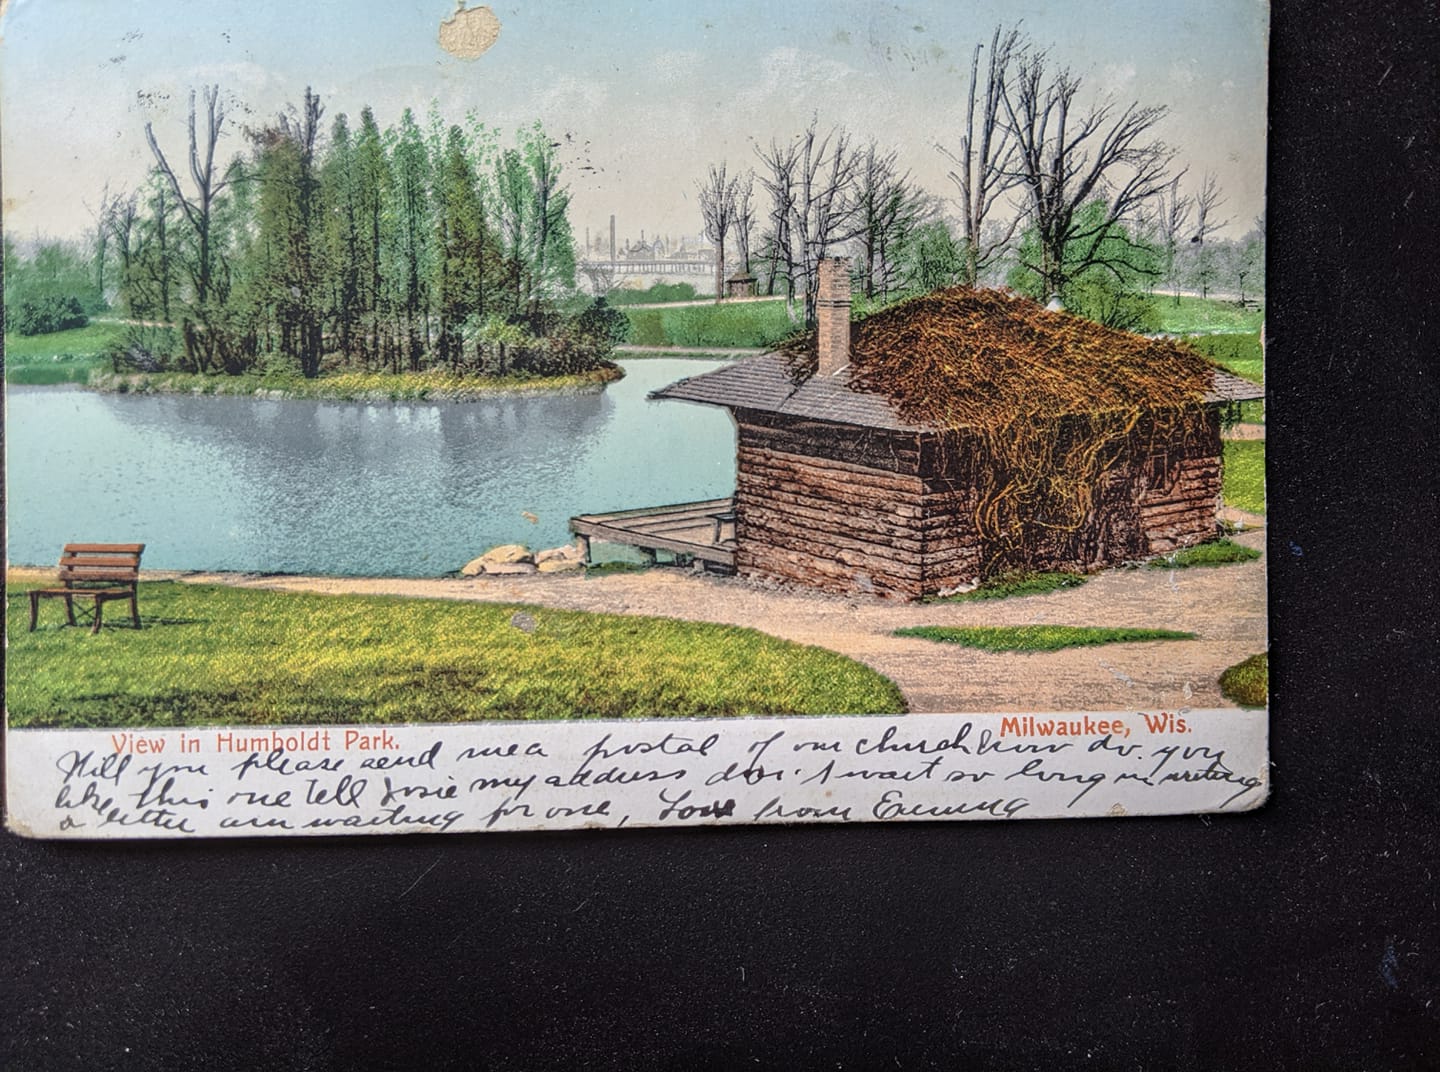 View in Humboldt Park.
Milwaukee, Wis.
Will you please send me a postal of our church how do you
like this one tell Josie my address don't wait so long in writing
a letter am waiting for one, Love from